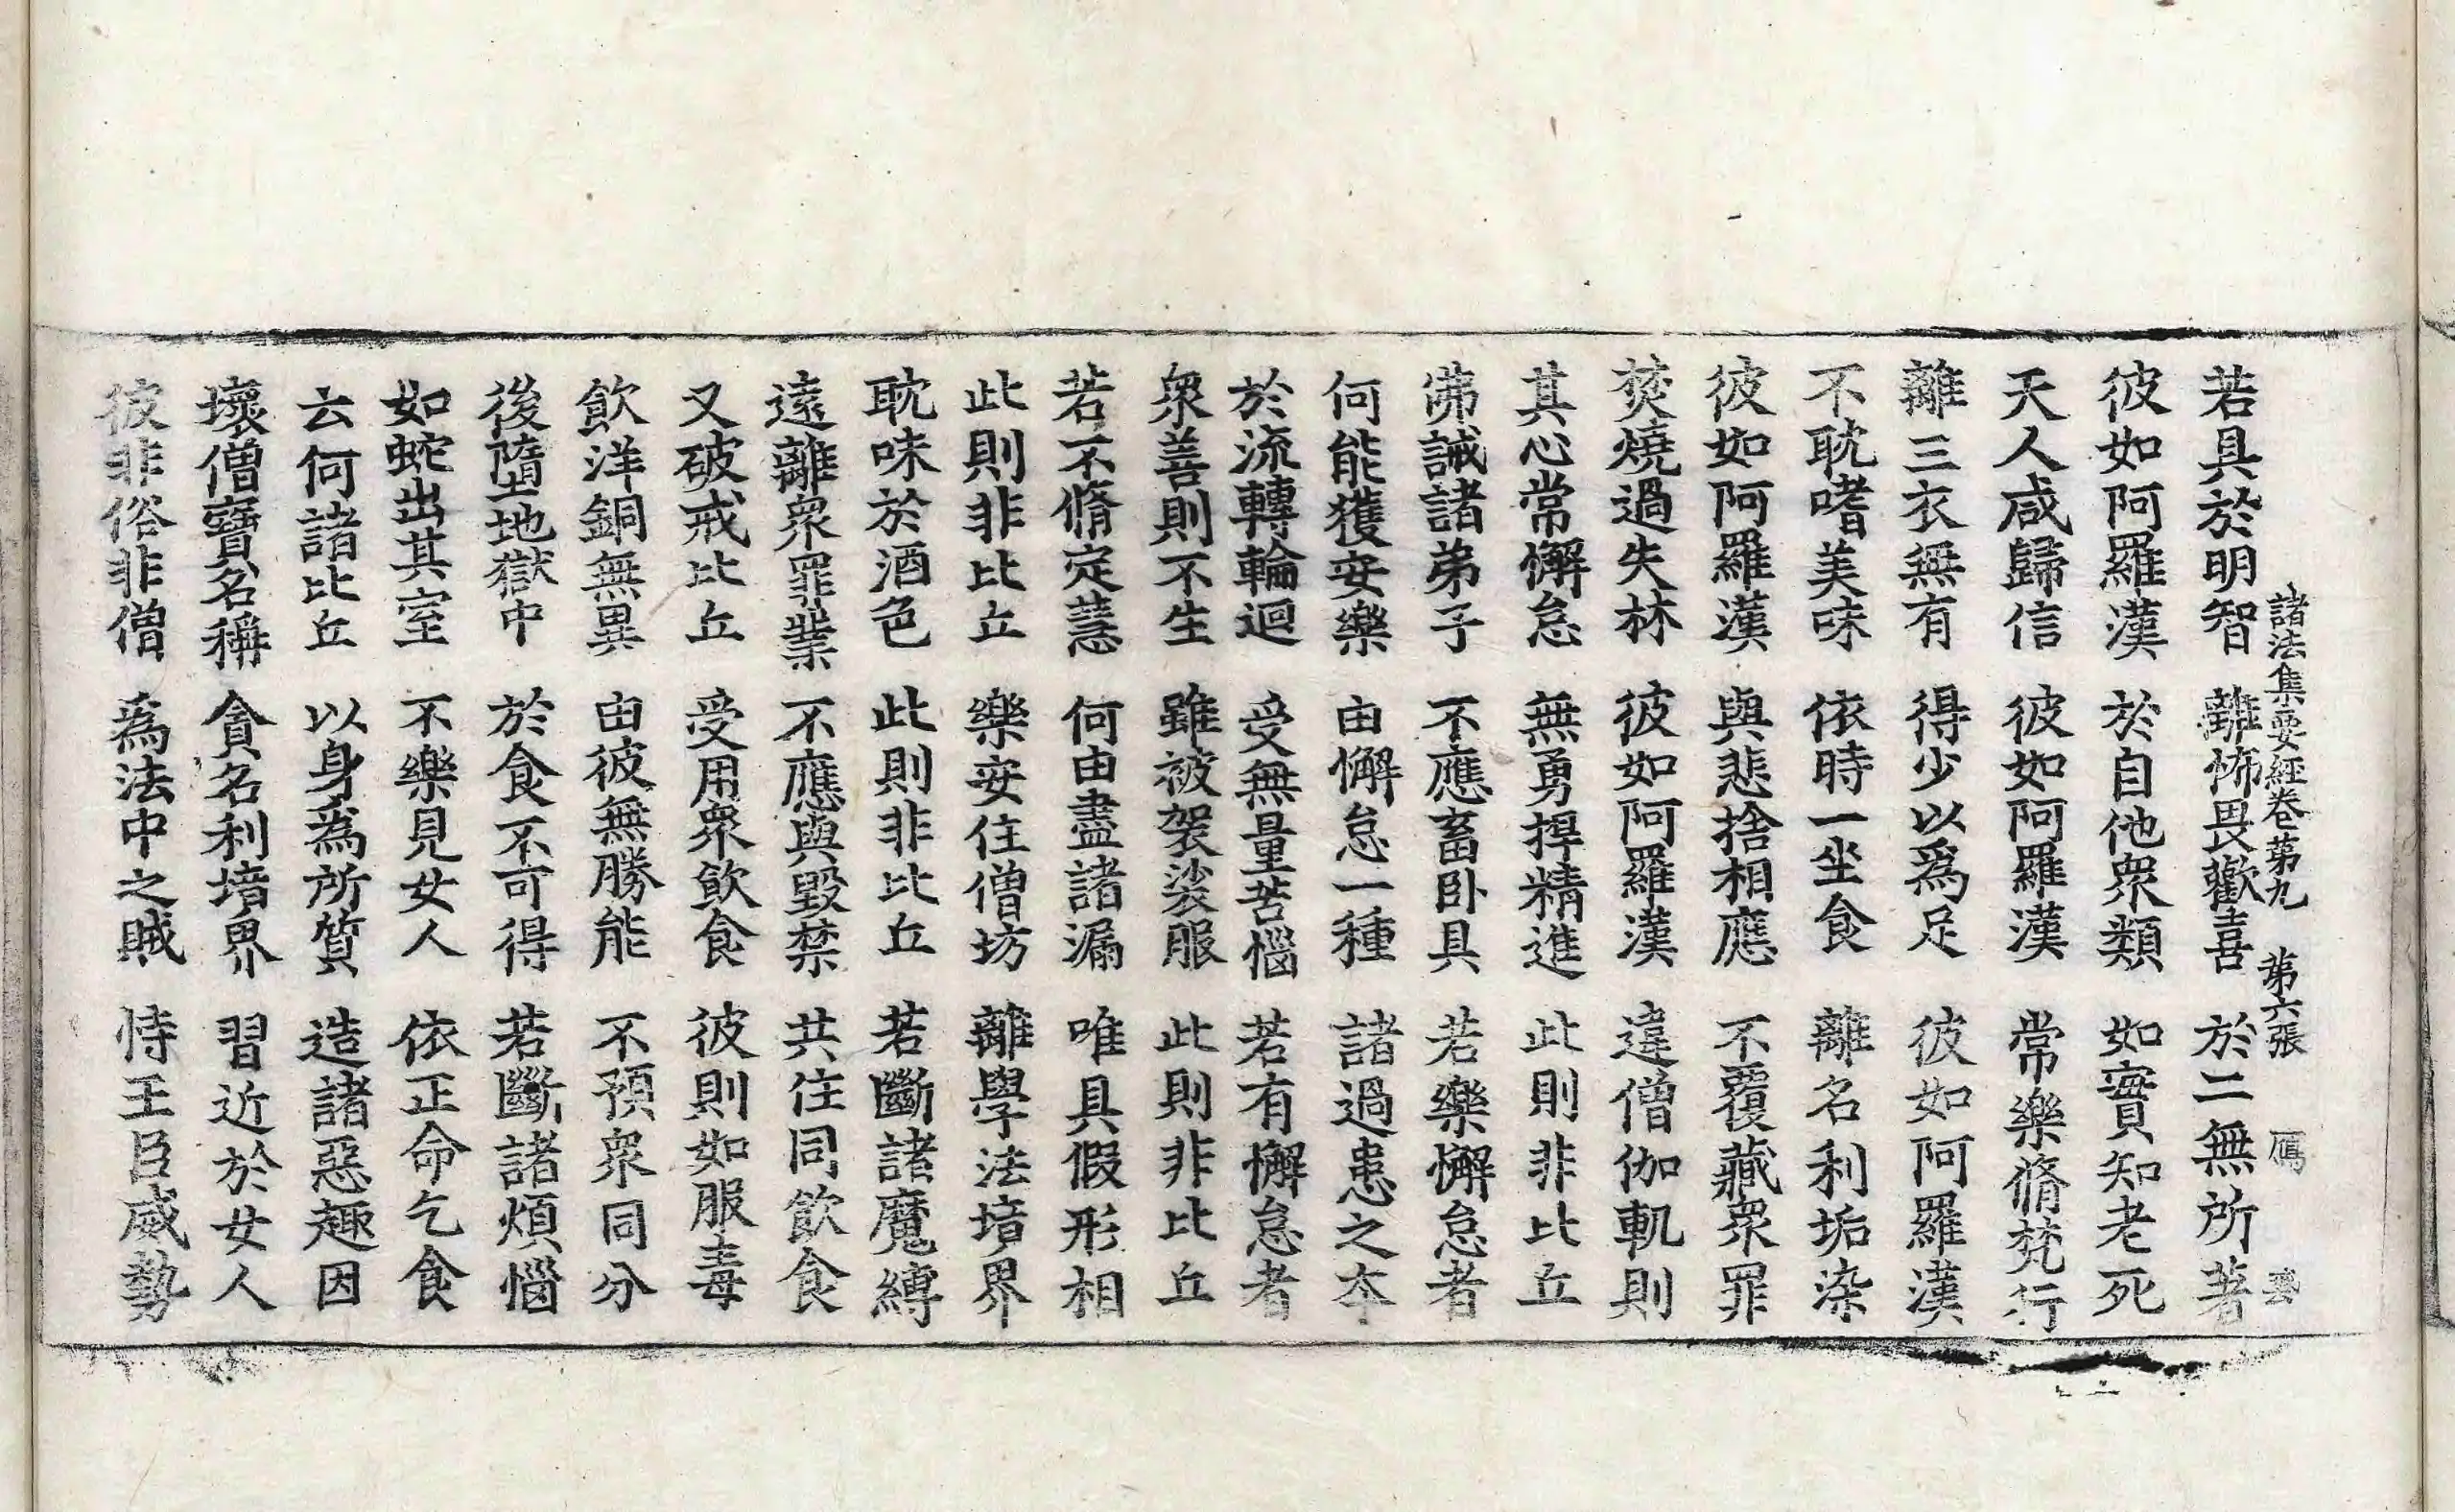 諸法集要經卷第九 第六張 鴈
若具於明智 離怖畏歡喜 於二無所著
彼如阿羅漢 於自他眾類 如實知老死
天人咸歸信 彼如阿羅漢 常樂脩梵行
離三衣無有 得少以為足 彼如阿羅漢
不耽嗜美味 依時一坐食 離名利垢染
彼如阿羅漢 與悲捨相應 不覆藏眾罪
焚燒過失林 彼如阿羅漢 違僧伽軌則
其心常懈怠 無勇捍精進 此則非比丘
沸誡諸弟子 不應畜卧具 若樂懈怠者
何能獲安樂 由懈怠一種 諸過患之夲
於流轉輪迴 受無量苦惱 若有懈怠者
眾善則不生 雖被袈裟服 此則非比丘
若不脩定慧 何由盡諸漏 唯具假形相
此則非比丘 樂安住僧坊 離學法境界
耽味於酒色 此則非比丘 若斷諸魔縛
遠離眾罪業 不應與毀禁 共住同飲食
又破戒比丘 受用眾飲食 彼則如服毒
飲洋銅無異 由彼無勝能 不預眾同分
後墮地獄中 於食不可得 若斷諸煩惱
如蛇出其室 不樂見女人 依正命乞食
云何諸比丘 以身為所質 造諸惡趣因
壞僧寶名稱 貪名利境界 習近於女人
彼非俗非僧 為法中之賊 恃王臣威勢